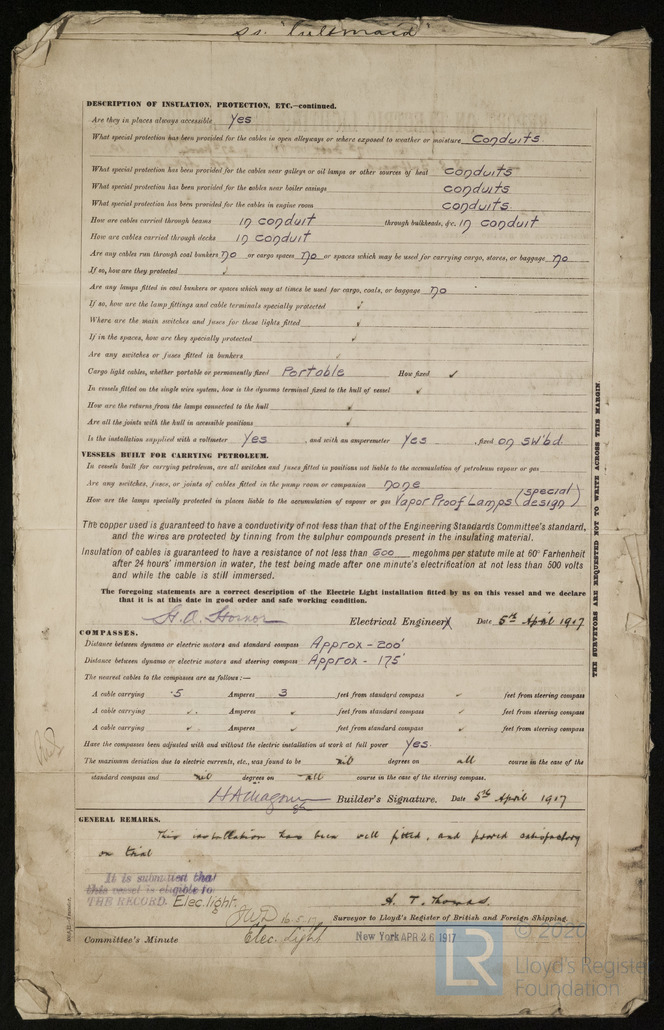 ss.
DESCRIPTION OF INSULATION, PROTECTION, ETC.—continued.
Are they in places always accessible Yes
What special protection has been provided for the cables in open alleyways or where exposed to weather or moisture Conduits.
What special protection has been provided for the cables near galleys or oil lamps or other sources of heat conduits
What special protection has been provided for the cables near boiler casings conduits
What special protection has been provided for the cables in engine room conduits
How are cables carried through beams in conduit through bulkheads, &c. in conduit
How are cables carried through decks in conduit
Are any cables run through coal bunkers no or cargo spaces no or spaces which may be used for carrying cargo, stores, or baggage no
If so, how are they protected ✓
Are any lamps fitted in coal bunkers or spaces which may at times be used for cargo, coals, or baggage no
If so, how are the lamp fittings and cable terminals specially protected ✓
Where are the main switches and fuses for these lights fitted ✓
If in the spaces, how are they specially protected ✓
Are any switches or fuses fitted in bunkers ✓
Cargo light cables, whether portable or permanently fixed Portable How fixed ✓
In vessels fitted on the single wire system, how is the dynamo terminal fixed to the hull of vessel ✓
How are the returns from the lamps connected to the hull ✓
Are all the joints with the hull in accessible positions ✓
Is the installation supplied with a voltmeter Yes , and with an amperemeter Yes , fixed on sw'bd.
VESSELS BUILT FOR CARRYING PETROLEUM.
In vessels built for carrying petroleum, are all switches and fuses fitted in positions not liable to the accumulation of petroleum vapour or gas
Are any switches, fuses, or joints of cables fitted in the pump room or companion none
How are the lamps specially protected in places liable to the accumulation of vapour or gas Vapor Proof Lamps (special design)
The copper used is guaranteed to have a conductivity of not less than that of the Engineering Standards Committee's standard,
and the wires are protected by tinning from the sulphur compounds present in the insulating material.
Insulation of cables is guaranteed to have a resistance of not less than 600 megohms per statute mile at 60° Farhenheit
after 24 hours' immersion in water, the test being made after one minute's electrification at not less than 500 volts
and while the cable is still immersed.
The foregoing statements are a correct description of the Electric Light installation fitted by us on this vessel and we declare
that it is at this date in good order and safe working condition.
Electrical Engineer Date 5th April 1917
COMPASSES.
Distance between dynamo or electric motors and standard compass Approx - 200'
Distance between dynamo or electric motors and steering compass Approx - 175'
The nearest cables to the compasses are as follows:—
A cable carrying .5 Amperes 3 feet from standard compass ✓ feet from steering compass
A cable carrying ✓ Amperes ✓ feet from standard compass ✓ feet from steering compass
A cable carrying ✓ Amperes ✓ feet from standard compass ✓ feet from steering compass
Have the compasses been adjusted with and without the electric installation at work at full power Yes.
The maximum deviation due to electric currents, etc., was found to be nil degrees on all course in the case of the
standard compass and nil degrees on all course in the case of the steering compass.
Builder's Signature. Date 5th April 1917
GENERAL REMARKS.
This installation has been well fitted, and proved satisfactory
on trial
It is submitted that
this vessel is eligible for
THE RECORD. Elec. light.
JWD 16.5.17
A. T. Thomas.
Surveyor to Lloyd's Register of British and Foreign Shipping.
Committee's Minute Elec. Light New York APR 26 1917
THE SURVEYORS ARE REQUESTED NOT TO WRITE ACROSS THIS MARGIN.
LR
© 2020
Lloyd's Register
Foundation